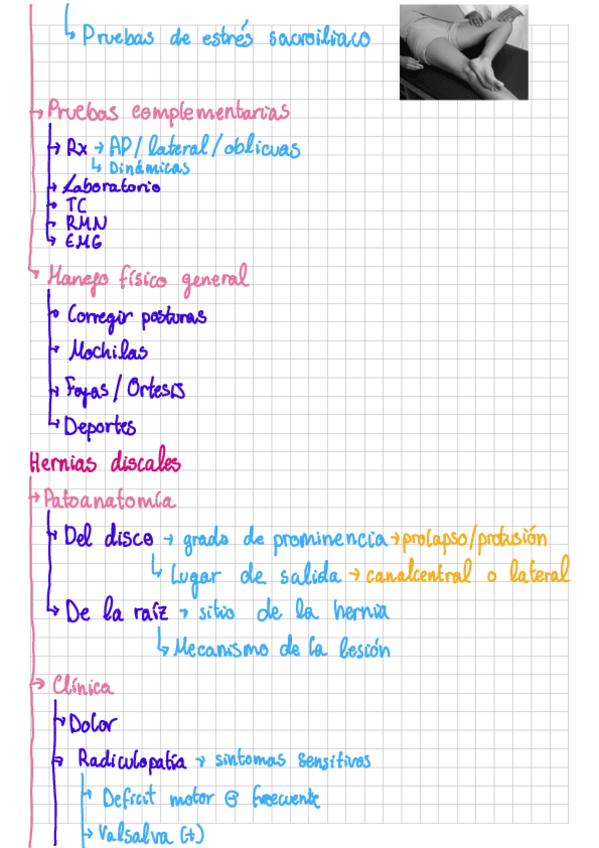 ↳ Pruebas de estrés sacroiliaco
→ Pruebas complementarias
→ Rx → AP/lateral/oblicuas
↳ Dinámicas
→ Laboratorio
→ TC
→ RMN
↳ EMG
→ Manejo físico general
→ Corregir posturas
→ Mochilas
→ Fajas/Ortesis
↳ Deportes
Hernias discales
→ Patoanatomía
→ Del disco → grado de prominencia → prolapso/protusión
↳ Lugar de salida → canal central o lateral
↳ De la raíz → sitio de la hernia
↳ Mecanismo de la lesión
→ Clínica
→ Dolor
→ Radiculopatía → sintomas sensitivos
→ Deficit motor ⊖ frecuente
→ Valsalva (+)